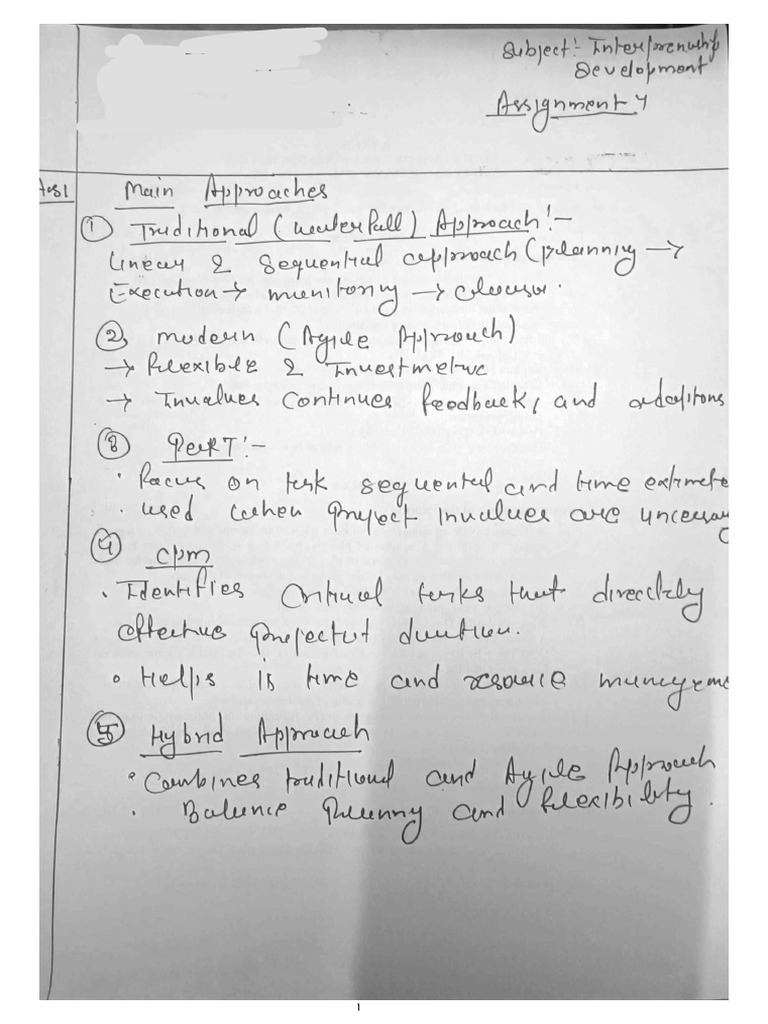 Subject:- Interprenuship
Development
Assignment 4
Main Approaches
① Traditional (waterfall) Approach:-
Linear & sequential approach (planning →
Execution → monitoring → closuso.
② modern (Agile Approach)
→ flexible & Investmetive
→ Invalues continues feedback, and adaptions
③ PERT:-
• Focus on task sequental and time estimate
• used when project invalues are uncessary
④ CPM
• Identifies Critical tasks that direcctely
effective projectut duration.
• Helps is time and resource manageme
⑤ Hybrid Approach
• Combines traditional and Agile Approach
• Balance Planning and flexibility.
1